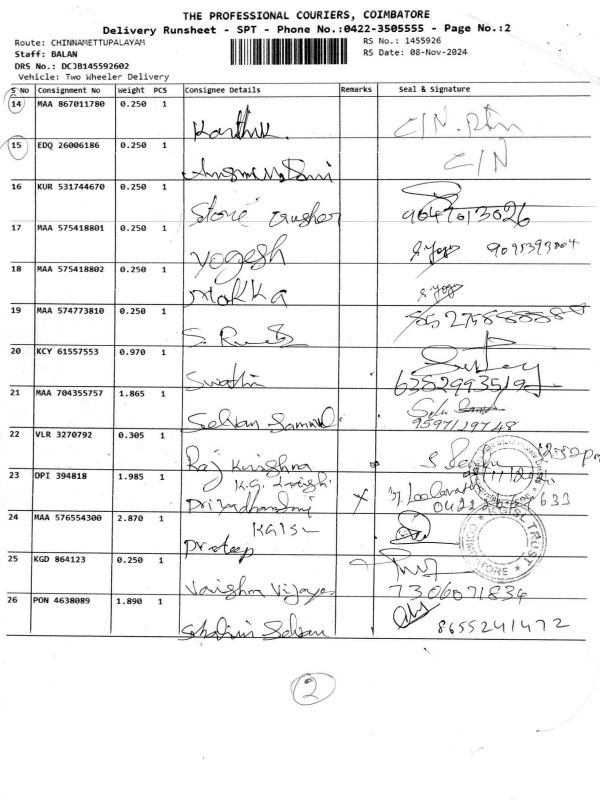 THE PROFESSIONAL COURIERS, COIMBATORE
Delivery Runsheet - SPT - Phone No.:0422-3505555 - Page No.:2
Route: CHINNAMETTUPALAYAM
RS No.: 1455926
Staff: BALAN
RS Date: 08-Nov-2024
DRS No.: DCJB145592602
Vehicle: Two Wheeler Delivery
S No Consignment No Weight PCS Consignee Details Remarks Seal & Signature
14 MAA 867011780 0.250 1 Karthik. C/N.
15 EDQ 26006186 0.250 1 C/N
16 KUR 531744670 0.250 1 Stone crusher 9047013026
17 MAA 575418801 0.250 1 Yogesh
18 MAA 575418802 0.250 1 Mokka
19 MAA 574773810 0.250 1 S.
20 KCY 61557553 0.970 1 Swathi 6382993519
21 MAA 704355757 1.865 1 Selvan 9597119748
22 VLR 3270792 0.305 1 Raj Krishna
K.G.
23 DPI 394818 1.985 1 Priyadharshini X
24 MAA 576554300 2.870 1 Prateep
25 KGD 864123 0.250 1 Vaishna Vijayan 7306071834
26 PON 4638089 1.890 1 Shalini Selvan 8655241472
2